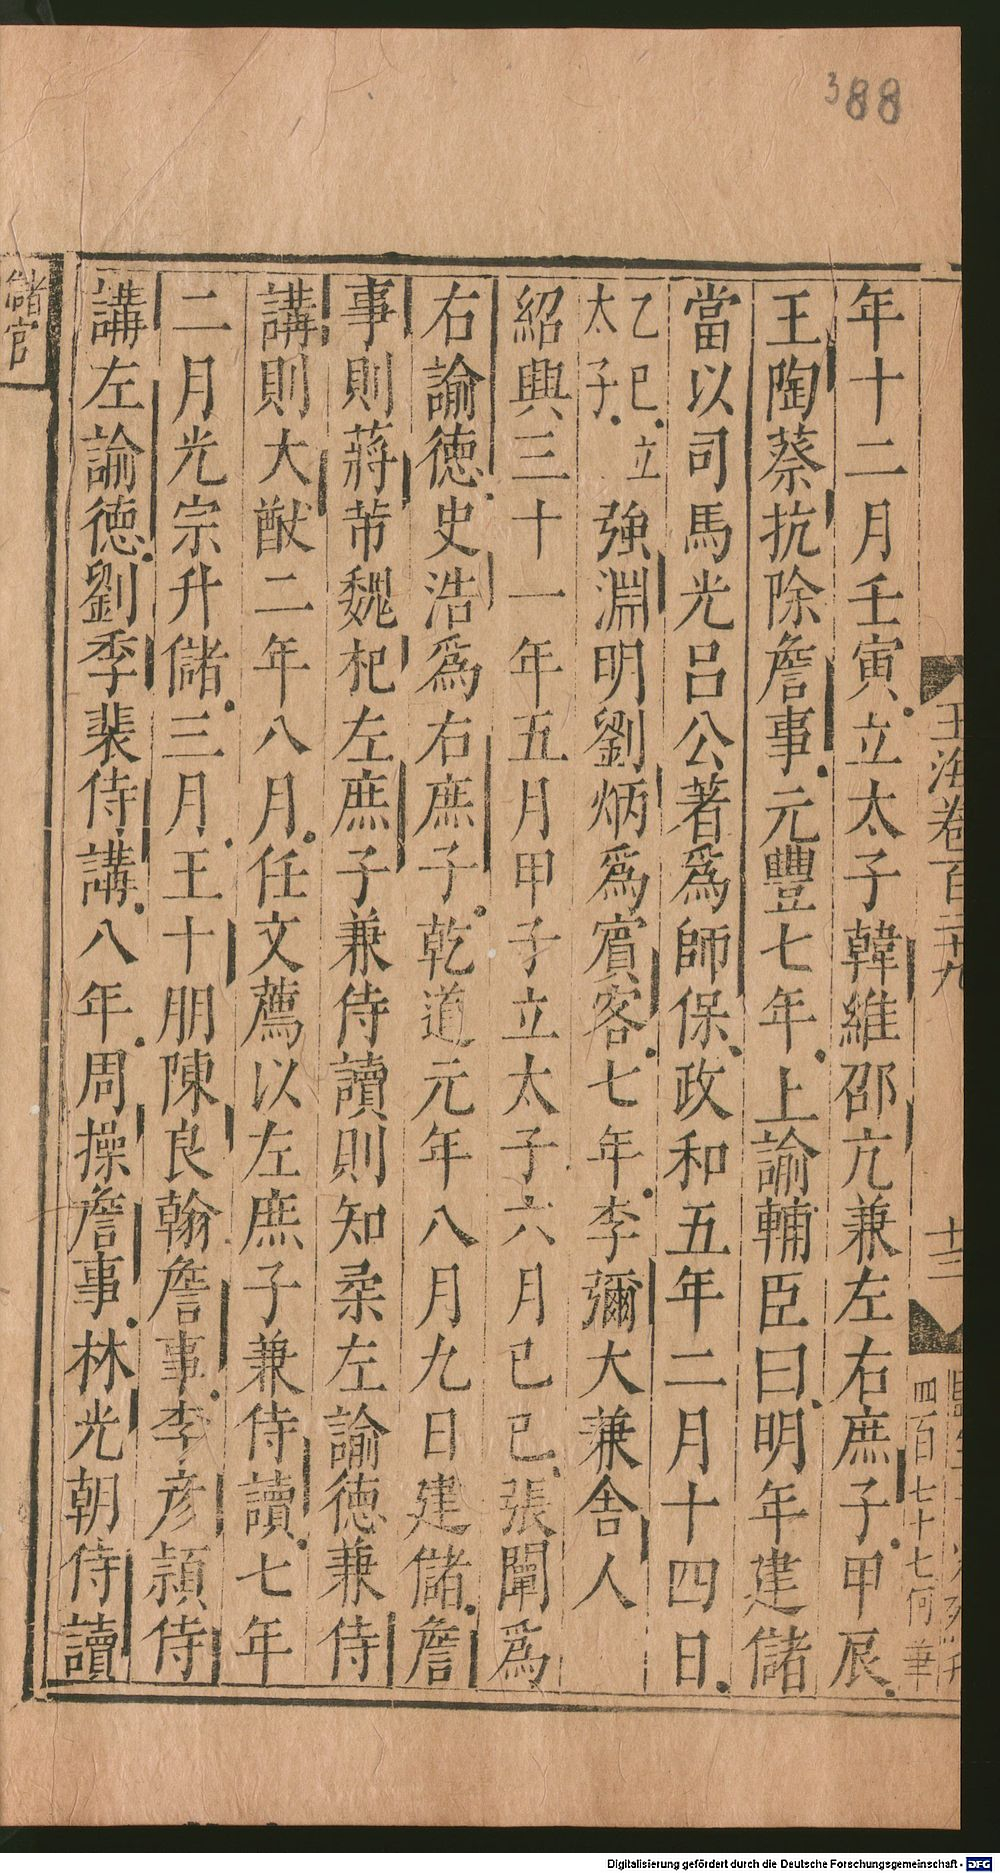 388
年十二月壬寅立太子韓維邵亢兼左右庶子甲辰
王陶蔡抗除詹事元豐七年上諭輔臣曰明年建儲
當以司馬光吕公著爲師保政和五年二月十四日
乙巳立
太子
強淵明劉炳爲賓客七年李彌大兼舎人
紹興三十一年五月甲子立太子六月己巳張闡爲
右諭徳史浩爲右庶子乾道元年八月九日建儲詹
事則蔣芾魏杞左庶子兼侍讀則知柔左諭徳兼侍
講則大猷二年八月任文薦以左庶子兼侍讀七年
二月光宗升儲三月王十朋陳良翰詹事李彦頴侍
講左諭徳劉季裴侍講八年周操詹事林光朝侍讀
儲官
玉海卷百二十九
十三
四百七十七何華
Digitalisierung gefördert durch die Deutsche Forschungsgemeinschaft - DFG